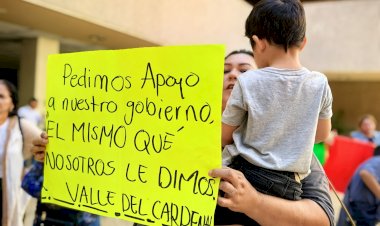 Pedimos Apoyo
a nuestro gobierno,
EL MISMO QUÉ
NOSOTROS LE DIMOS.
VALLE DEL CARDENAL